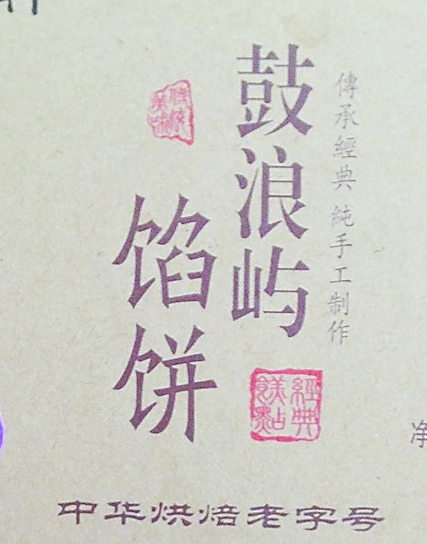 傳承經典 純手工制作
鼓浪屿
馅饼
傳統
美味
經典
鎂點
中华烘焙老字号
净